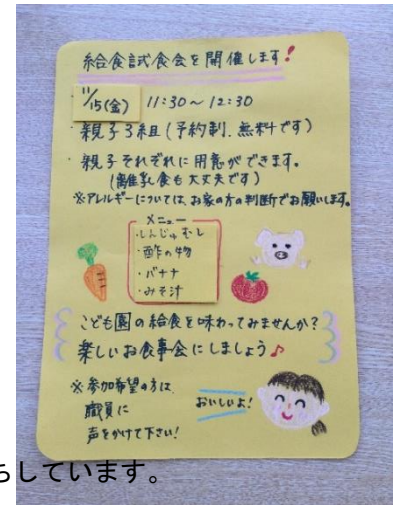 給食試食会を開催します!
11/15(金) 11:30~12:30
・親子3組(予約制.無料です)
・親子それぞれに用意ができます。
(離乳食も大丈夫です)
※アレルギーについては、お家の方の判断でお願いします。
メニュー
・しんじゅむし
・酢の物
・バナナ
・みそ汁
こども園の給食を味わってみませんか?
楽しいお食事会にしましょう♪
※参加希望の方は
職員に
声をかけて下さい!
おいしいよ!
ちしています。